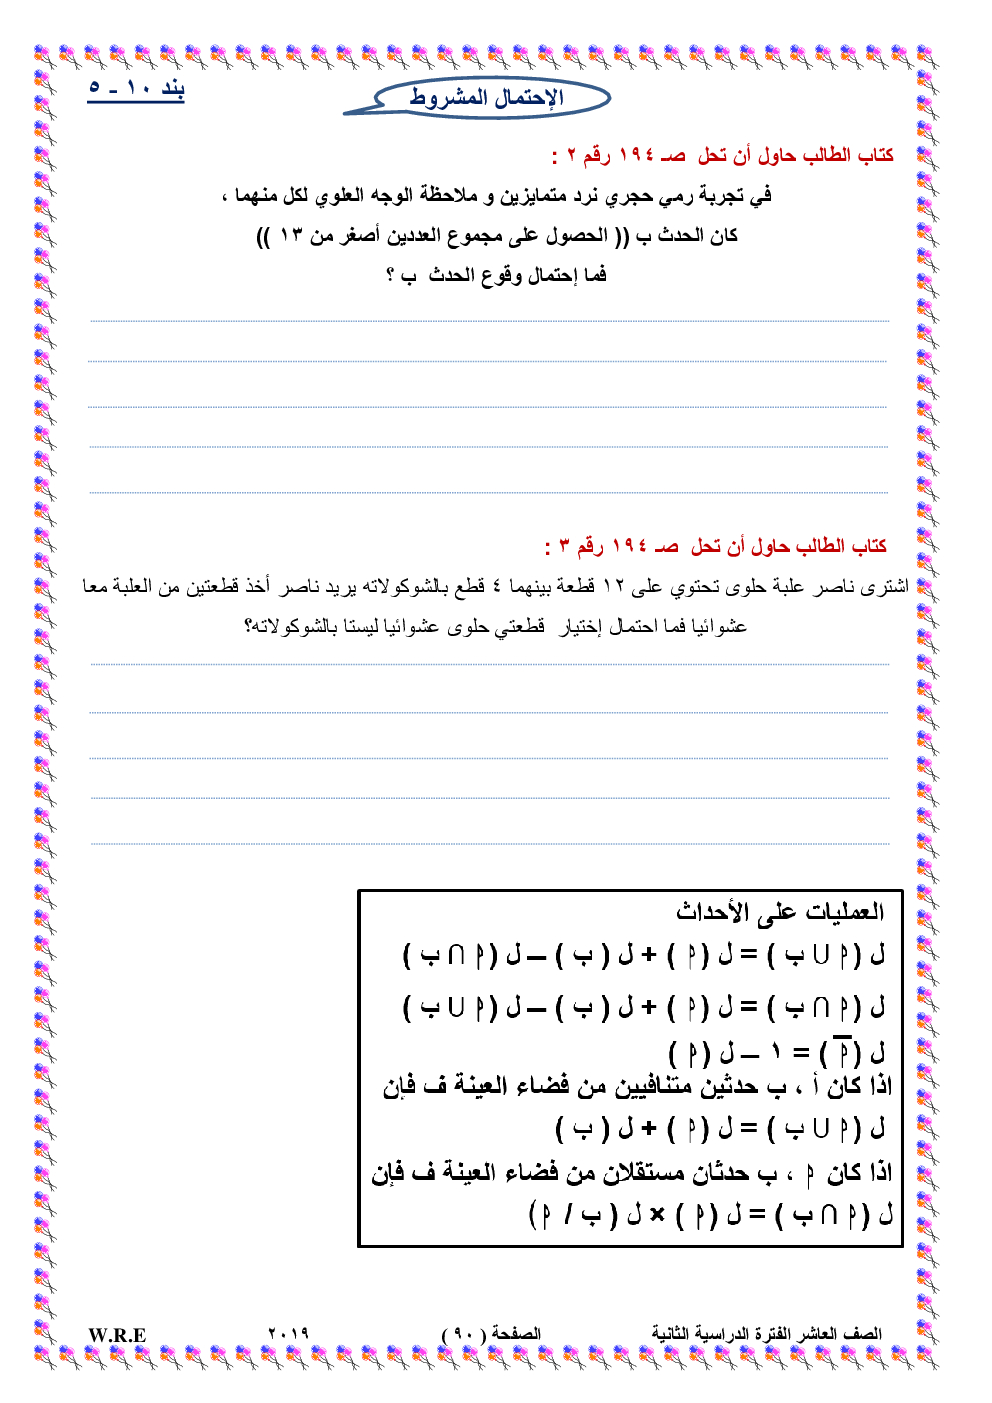 بند ١٠ - ٥
الإحتمال المشروط
كتاب الطالب حاول أن تحل صـ ١٩٤ رقم ٢ :
في تجربة رمي حجري نرد متمايزين و ملاحظة الوجه العلوي لكل منهما ،
كان الحدث ب (( الحصول على مجموع العددين أصغر من ١٣ ))
فما إحتمال وقوع الحدث ب ؟
كتاب الطالب حاول أن تحل صـ ١٩٤ رقم ٣ :
اشترى ناصر علبة حلوى تحتوي على ١٢ قطعة بينهما ٤ قطع بالشوكولاته يريد ناصر أخذ قطعتين من العلبة معا
عشوائيا فما احتمال إختيار قطعتي حلوى عشوائيا ليستا بالشوكولاته؟
العمليات على الأحداث
ل ( م ∪ ب ) = ل ( م ) + ل ( ب ) – ل ( م ∩ ب )
ل ( م ∩ ب ) = ل ( م ) + ل ( ب ) – ل ( م ∪ ب )
ل ( م̅ ) = ١ – ل ( م )
اذا كان أ ، ب حدثين متنافيين من فضاء العينة ف فإن
ل ( م ∪ ب ) = ل ( م ) + ل ( ب )
اذا كان م ، ب حدثان مستقلان من فضاء العينة ف فإن
ل ( م ∩ ب ) = ل ( م ) × ل ( ب / م )
الصف العاشر الفترة الدراسية الثانية الصفحة ( ٩٠ ) ٢٠١٩ W.R.E